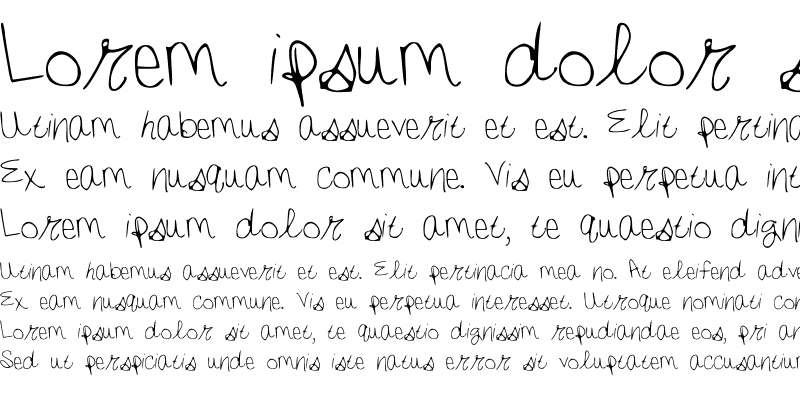 Lorem ipsum dolor s
Utinam habemus assueverit et est. Elit pertina
Ex eam nusquam commune. Vis eu perpetua int
Lorem ipsum dolor sit amet, te quaestio digni
Utinam habemus assueverit et est. Elit pertinacia mea no. At eleifend adve
Ex eam nusquam commune. Vis eu perpetua interesset. Utroque nominati con
Lorem ipsum dolor sit amet, te quaestio dignissim repudiandae eos, pri an
Sed ut perspiciatis unde omnis iste natus error sit voluptatem accusantium